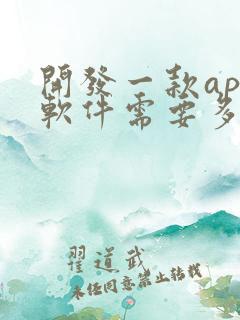 開發一款ap
軟件需要多
翟道武
未經同意禁止轉載